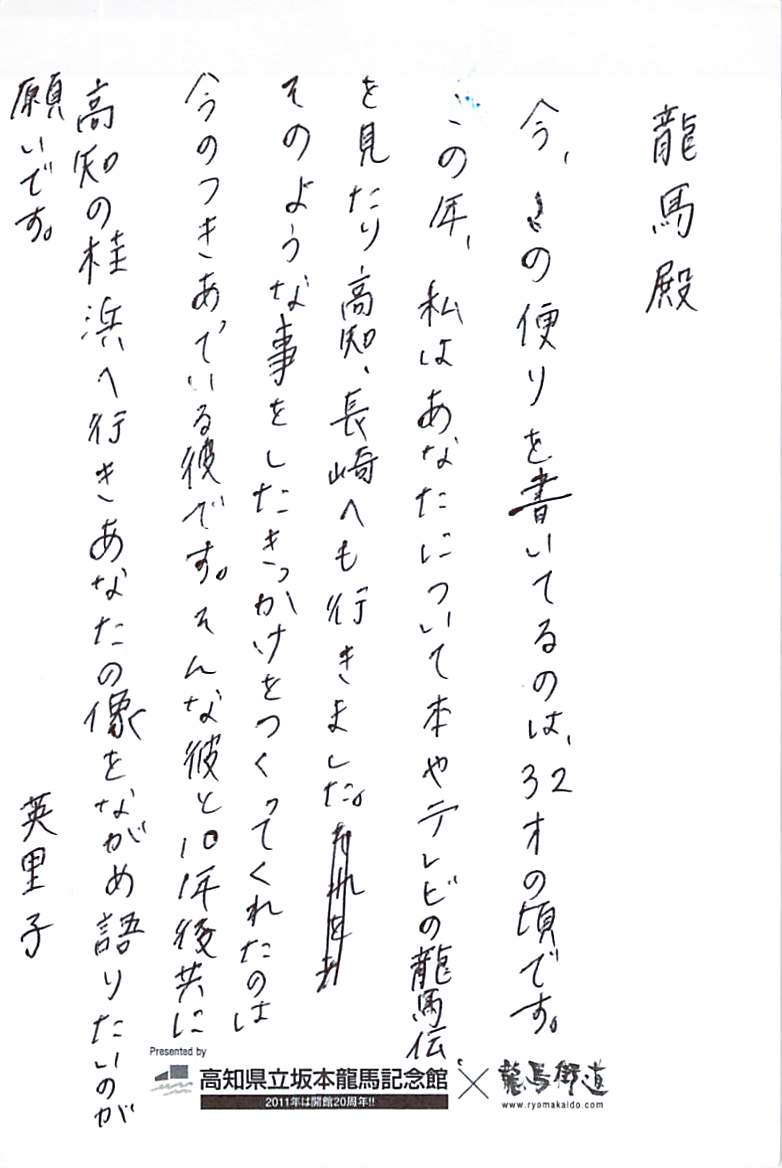 龍馬殿
今、この便りを書いてるのは、32才の頃です。
この年、私はあなたについて本やテレビの龍馬伝
を見たり高知、長崎へも行きました。
そのような事をしたきっかけをつくってくれたのは
今のつきあっている彼です。そんな彼と10年後共に
高知の桂浜へ行きあなたの像をながめ語りたいのが
願いです。
英里子
Presented by
高知県立坂本龍馬記念館 × 龍馬街道
2011年は開館20周年!!
www.ryomakaido.com